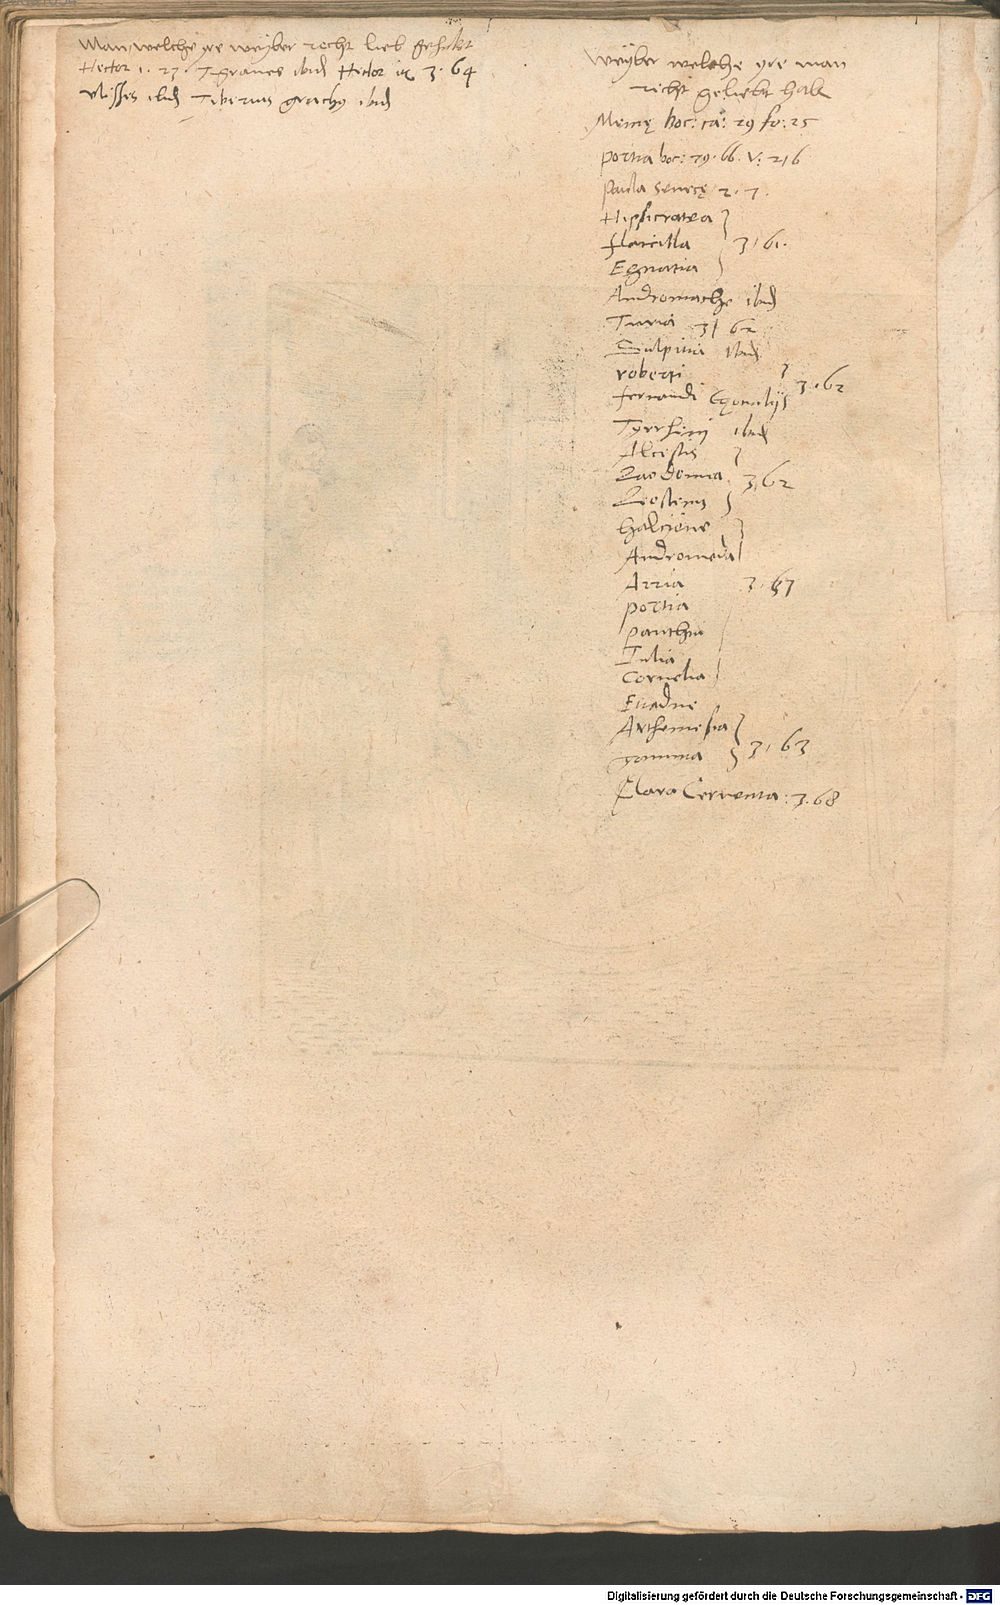 Man welche yre weyber recht lieb gehabt
Hector 1. 27. Tigranes ibid Hector 3. 64
Ulisses ibid Tiberius grachy ibid
weyber welche yre man
recht geliebt hab
Menię boc: ca: 29 fo: 25
portia boc: 79. 66. v: 216
Paula Senecę 2. 7.
Hipsicratea
flaccilla 3. 61.
Egnatia
Andromache ibid
Turia 3. 62
Sulpitia ibid
roberti
fernandi Gzonalij 3. 62
Tyrrheni ibid
Alcestis
Laodomia 3. 62
Leostenis
halcione
Andromeda
Arria 3. 67
portia
panthia
Iulia
Cornelia
Euadne
Arthemesia
3. 63
Clara Ceruenta: 3. 68
Digitalisierung gefördert durch die Deutsche Forschungsgemeinschaft - DFG